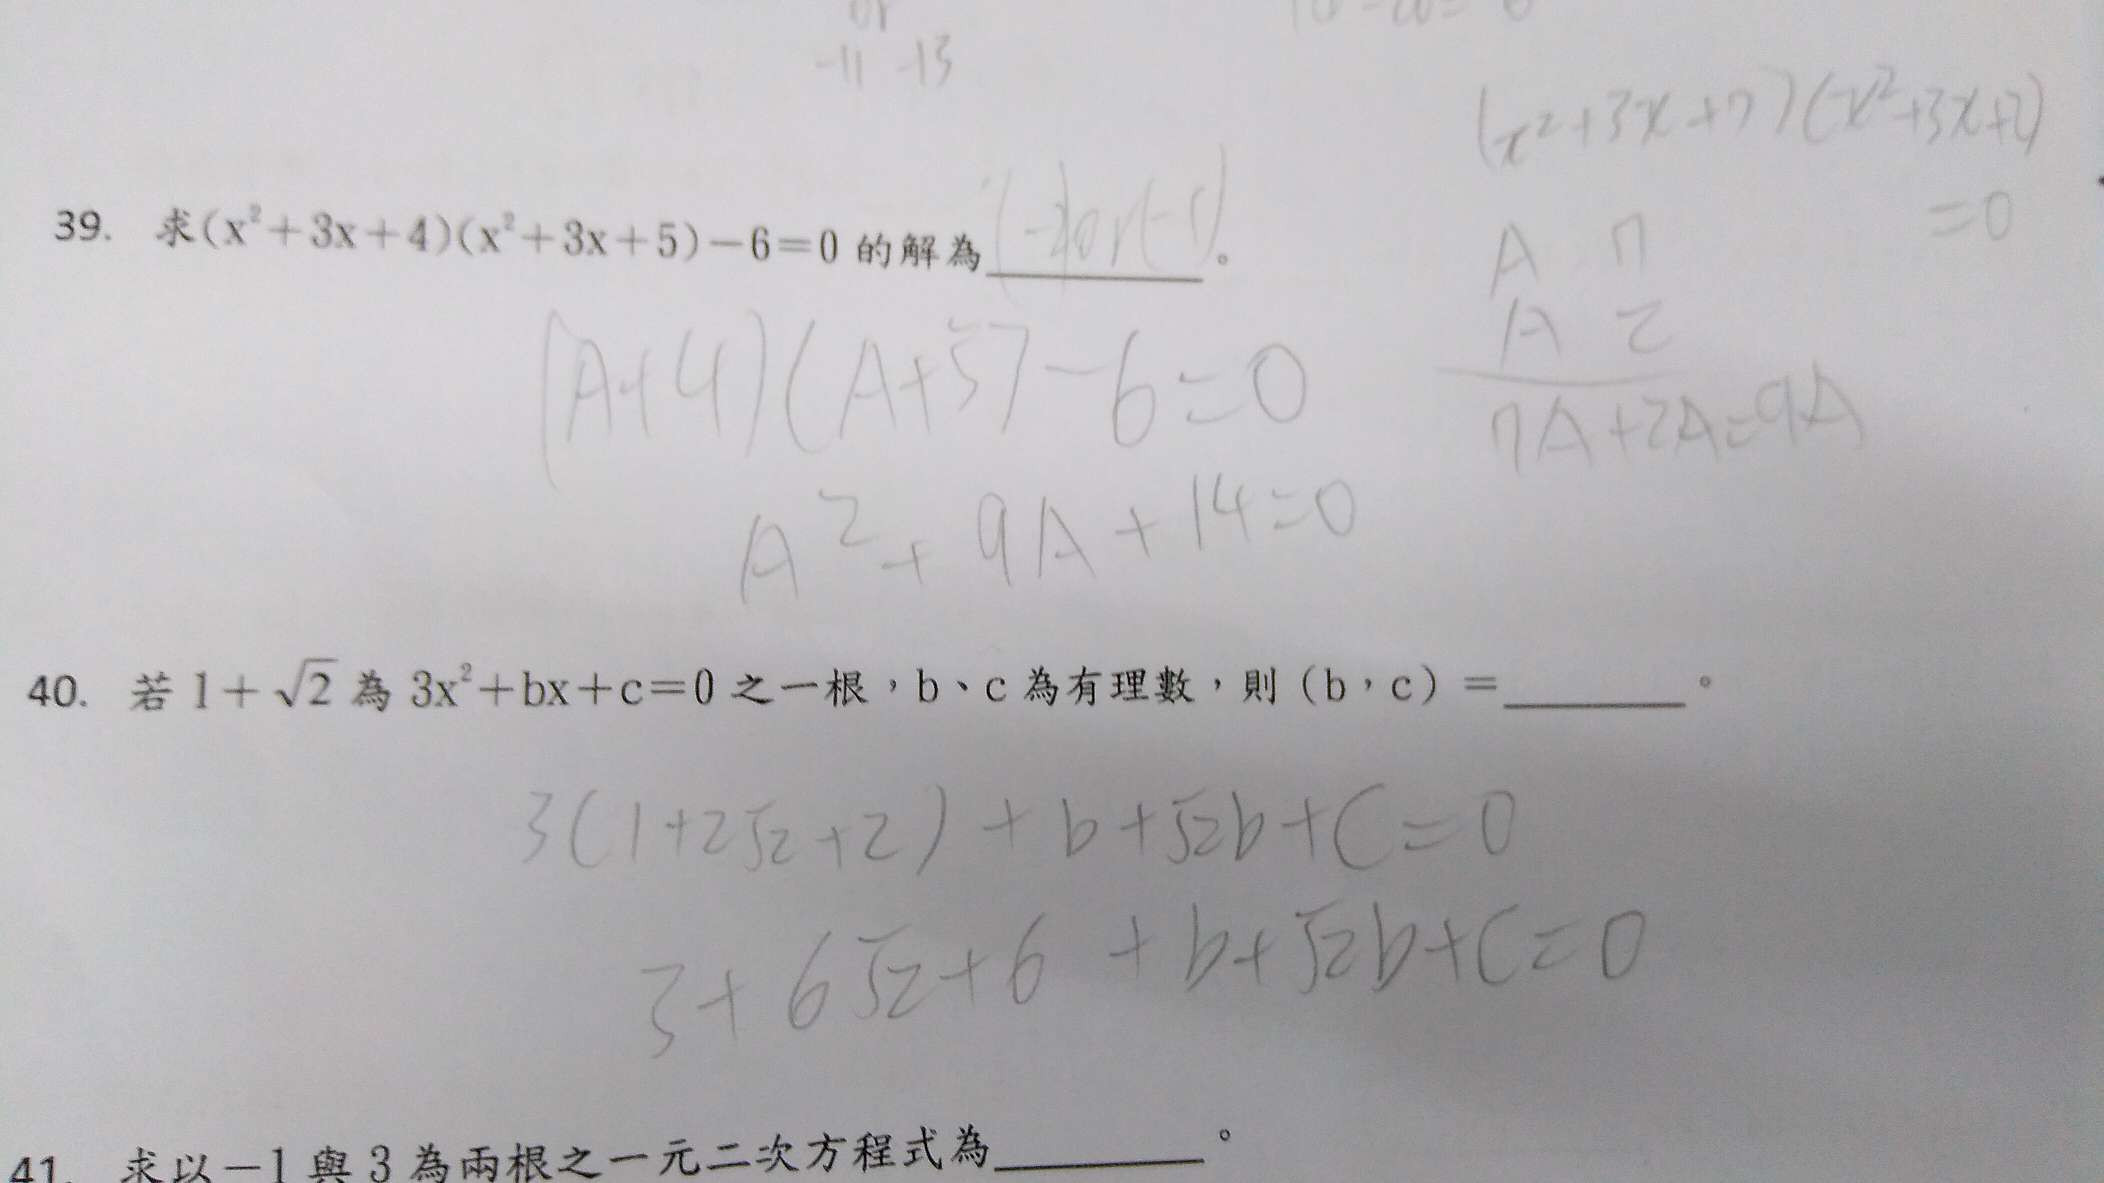 -11 -13
(x²+3x+7)(x²+3x+2)
=0
39. 求(x²+3x+4)(x²+3x+5)-6=0 的解為 (-2)or(-1)。
A 7
A 2
7A+2A=9A
(A+4)(A+5)-6=0
A²+9A+14=0
40. 若 1+√2 為 3x²+bx+c=0 之一根，b、c 為有理數，則（b，c）=________。
3(1+2√2+2)+b+√2b+C=0
3+6√2+6+b+√2b+C=0
41. 求以-1與3為兩根之一元二次方程式為________。